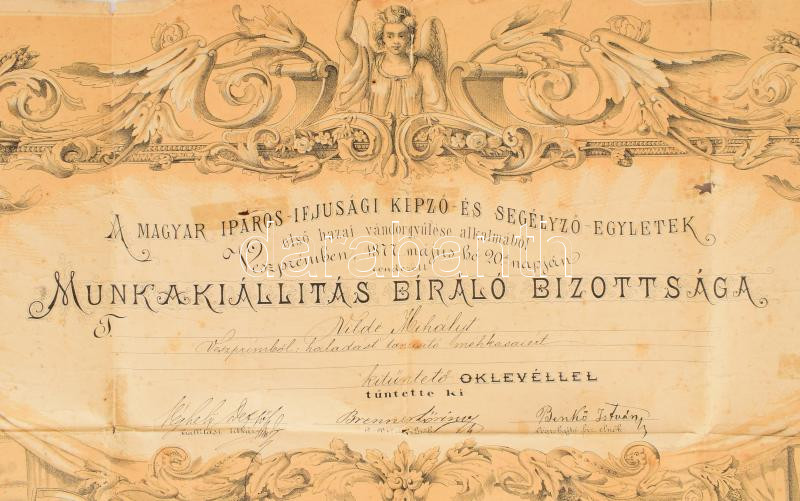 A MAGYAR IPAROS-IFJUSÁGI KÉPZŐ-ÉS SEGÉLYZŐ-EGYLETEK
első hazai vándorgyűlése alkalmából
Veszprémben 1877 május hó 20án napján
rendezett
MUNKAKIÁLLITÁS BIRÁLÓ BIZOTTSÁGA
T. Nilde Mihályt
Veszprémből: haladást tanusitó méhkasáért
kitüntető OKLEVÉLLEL
tüntette ki
Brenner Lőrincz
Benkő István
darabanth